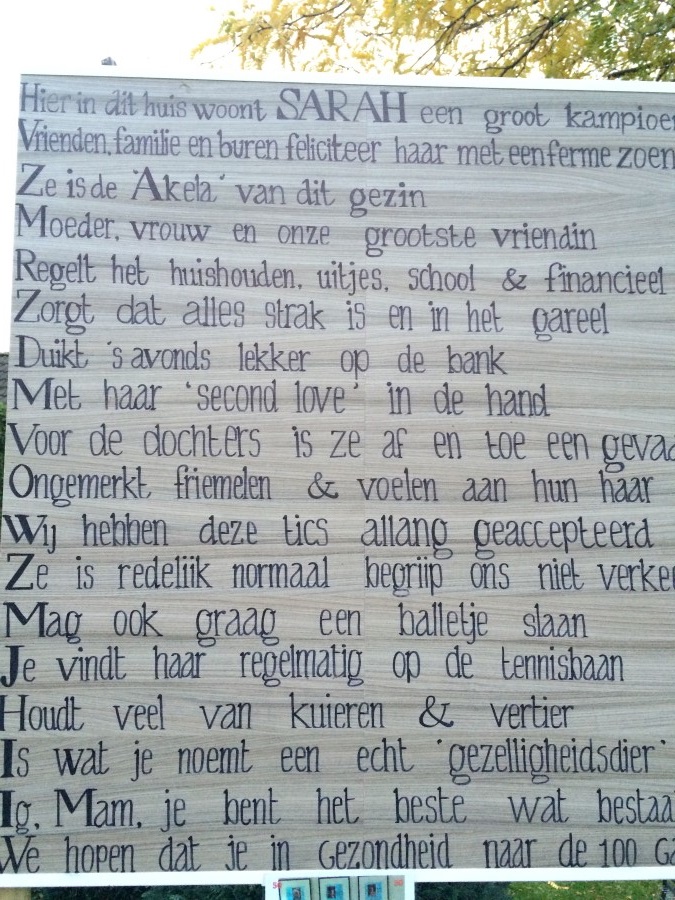 Hier in dit huis woont SARAH een groot kampioe
Vrienden, familie en buren feliciteer haar met een ferme zoen
Ze is de 'Akela' van dit gezin
Moeder, vrouw en onze grootste vriendin
Regelt het huishouden, uitjes, school & financieel
Zorgt dat alles strak is en in het gareel
Duikt 's avonds lekker op de bank
Met haar 'second love' in de hand
Voor de dochters is ze af en toe een gevaa
Ongemerkt friemelen & voelen aan hun haar
Wij hebben deze tics allang geaccepteerd
Ze is redelijk normaal begrijp ons niet verkee
Mag ook graag een balletje slaan
Je vindt haar regelmatig op de tennisbaan
Houdt veel van kuieren & vertier
Is wat je noemt een echt 'gezelligheidsdier'
Ig, Mam, je bent het beste wat bestaa
We hopen dat je in Gezondheid naar de 100 Ga
50 50